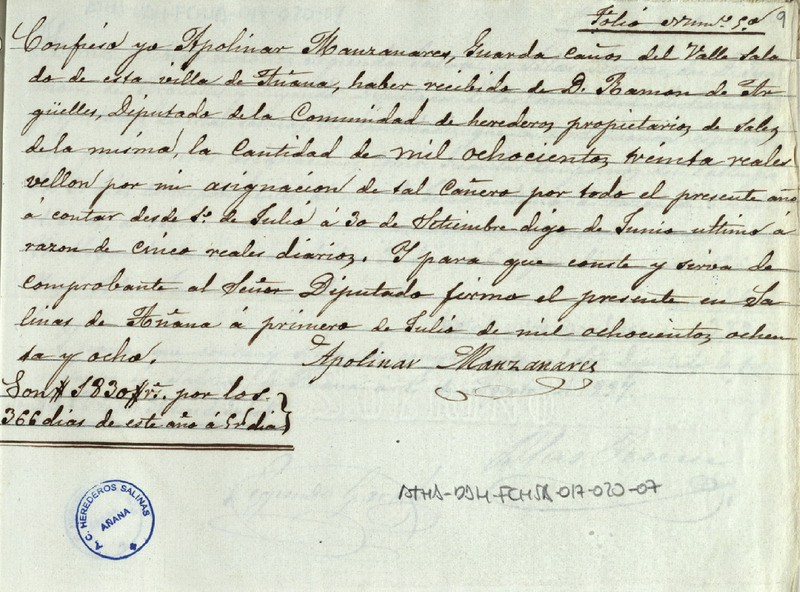 Folio Num.º 5.º 9
Confieso yo Apolinar Manzanares, Guarda caños del Valle Sala
do de esta villa de Añana, haber recibido de D. Ramon de Ar
güelles, Diputado de la Comunidad de herederos propietarios de Sales
de la misma, la Cantidad de mil ochocientos treinta reales
vellon por mi asignacion de sal Cañero por todo el presente año
á contar desde 1.º de Julio á 30 de Setiembre digo de Junio ultimo á
razon de cinco reales diarios. Y para que conste y sirva de
comprobante al Señor Diputado firmo el presente en Sa
linas de Añana á primero de Julio de mil ochocientos ochen
ta y ocho.
Apolinar Manzanares
Son # 1830 # rs. por los
366 dias de este año á 5 rs. dia
ATHA-DAH-FCHSA-017-020-07
A.C. HEREDEROS SALINAS
AÑANA